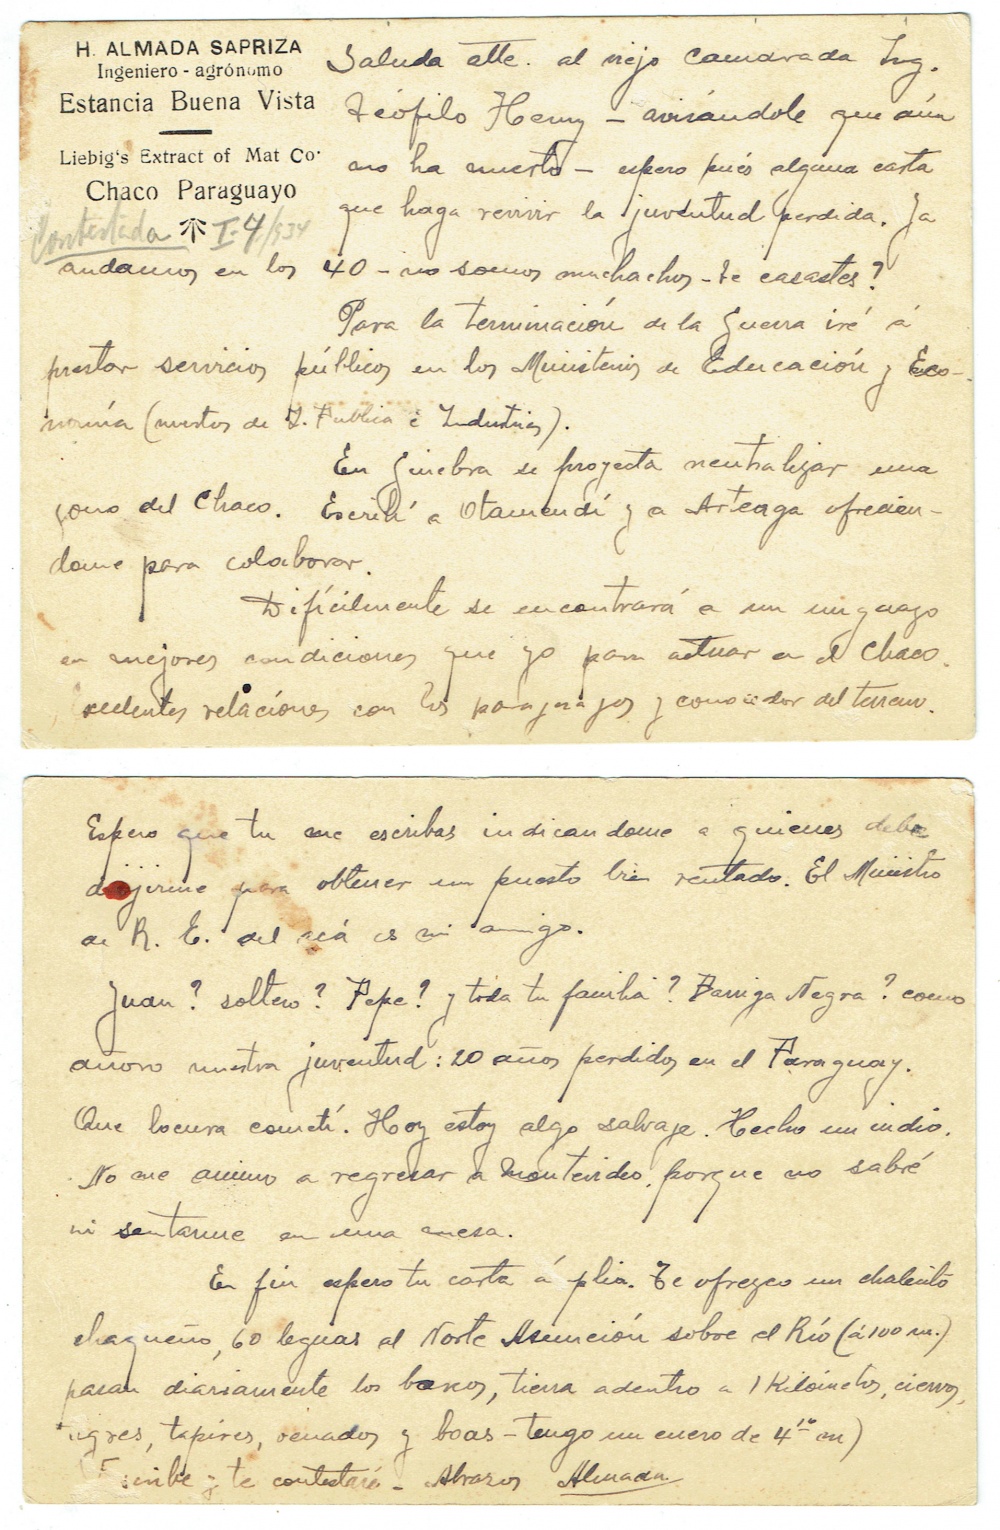 H. ALMADA SAPRIZA
Ingeniero-agrónomo
Estancia Buena Vista
Liebig's Extract of Mat Co.
Chaco Paraguayo
Contestada I-7/934
Saluda atte. al viejo camarada Ing.
Teófilo Henry - avisándole que aún
no ha muerto - espero pués alguna carta
que haga revivir la juventud perdida. Ya
andamos en los 40 - no somos muchachos - te casastes?
Para la terminación de la Guerra iré á
prestar servicios públicos en los Ministerios de Educación y Eco-
nomía (nuestros de I. Publica é Industrias).
En Ginebra se proyecta neutralizar una
zona del Chaco. Escribí a Otamendí y a Arteaga ofrecien-
dome para colaborar.
Difícilmente se encontrará a un uruguayo
en mejores condiciones que yo para actuar en el Chaco.
celentes relaciones con los paraguayos y conocedor del terreno.
Espero que tu me escribas indicandome a quienes debe
dirijirme para obtener un puesto bien rentado. El Ministro
de R. E. del acá es mi amigo.
Juan? soltero? Pepe? y toda tu familia? Barriga Negra? como
añoro nuestra juventud: 20 años perdidos en el Paraguay.
Que locura cometí. Hoy estoy algo salvaje. Hecho un indio.
No me animo a regresar a Montevideo, porque no sabré
ni sentarme en una mesa.
En fin espero tu carta á Te ofrezco un chalecito
chaqueño, 60 leguas al Norte Asunción sobre el Río (á 100 m.)
pasan diariamente los barcos, tierra adentro a 1 Kilómetro, ciervos,
tigres, tapires, venados y boas - tengo un cuero de 4 m)
Escribe y te contestaré - Abrazos Almada